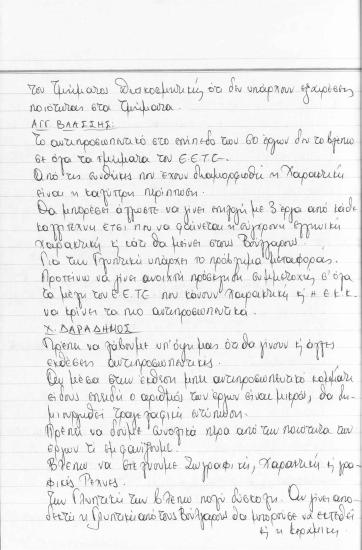 του Τμήματος Διακοσμητικής ότι δεν υπάρχουν εξαιρέσεις
ποιότητας στα Τμήματα.
ΑΓΓ. ΒΛΑΣΣΗΣ:
Το αντιπροσωπευτικό στο επίπεδο των 60 έργων δεν το βλέπω
σε όλα τα τμήματα του Ε.Ε.Τ.Ε.
Από τις συνθήκες που έχουν διαμορφωθεί η Χαρακτική
είναι η καλύτερη περίπτωση.
Θα μπορέσει άγνωστε να γίνει επιλογή με 3 έργα από κάθε
καλλιτέχνη έτσι που να φαίνεται η σύγχρονη ελληνική
Χαρακτική ή κάτι θα μείνει στους Βούλγαρους.
Για την Γλυπτική υπάρχει το πρόβλημα μεταφοράς.
Προτείνω να γίνει ανοιχτή πρόσκληση συμμετοχής σ' όλα
τα μέλη του Ε.Ε.Τ.Ε. που κάνουν Χαρακτική ή η Ε.Κ.Κ.
να κρίνει τα πιο αντιπροσωπευτικά.
Χ. ΔΑΡΑΔΗΜΟΣ
Πρέπει να λάβουμε υπ' όψη μας ότι θα γίνουν ή άλλες
εκθέσεις αντιπροσωπευτικές.
Αν μέσα στην έκθεση μπει αντιπροσωπευτικό κομμάτι
είδους επειδή ο αριθμός των έργων είναι μικρός, θα δη-
μιουργηθεί τραγελαφική εντύπωση.
Πρέπει να δούμε συνολικά πέρα από την ποιότητα των
έργων τι εμφανίζουμε.
Βλέπω να στέλνουμε Ζωγραφική, Χαρακτική ή γρα-
φικές Τέχνες.
Την Γλυπτική την βλέπω πολύ δύσκολη. Αν γίνει απο-
δεκτή η Γλυπτική από τους Βούλγαρους θα μπορούσε να εκτεθεί
ή η κεραμική.